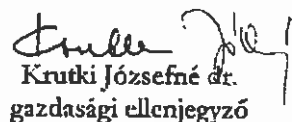 Krutki Józsefné dr.
gazdasági ellenjegyző